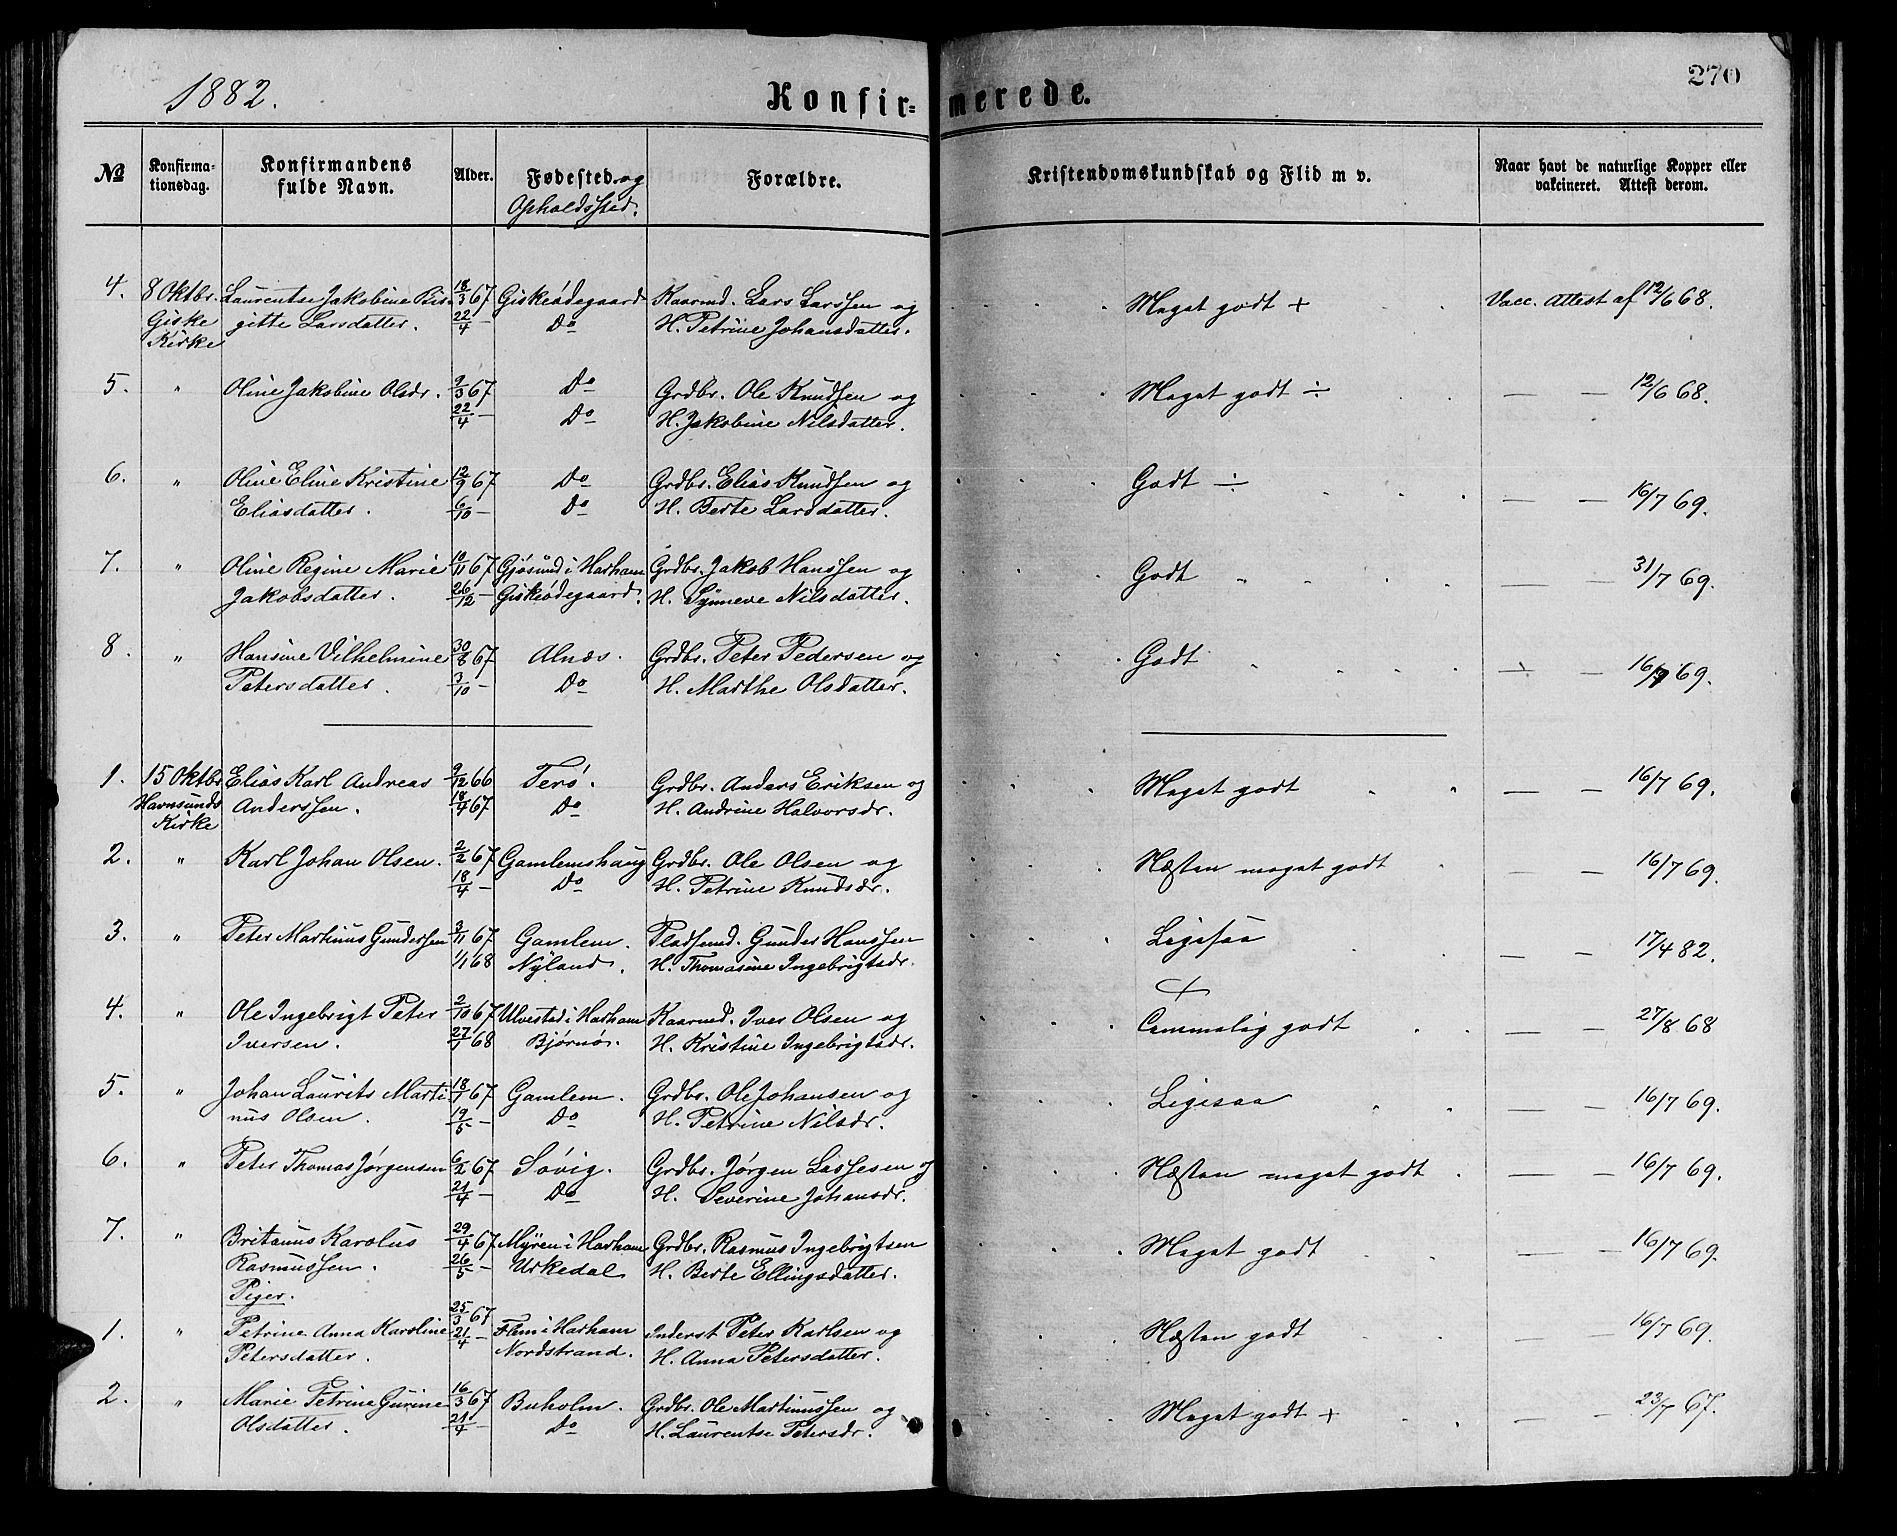 1882. Konfirmerede. 270
№ Konfirmationsdag. Konfirmandens fulde Navn. Alder. Fødested og Opholdssted. Forældre. Kristendomskundskab og Flid m v. Naar havt de naturlige Kopper eller vakcineret. Attest derom.
4. 8 Oktbr. Laurentse Jakobine Bir- 18/3 67 Giskeødegaard Kaarmd. Lars Larssen og Meget godt + Vacc. Attest af 12/6 68.
Giske Kirke gitte Larsdatter. 22/4 — Do H. Petrine Johansdatter.
5. " Oline Jakobine Olsdr. 9/3 67 Do Grdbr. Ole Knudsen og Meget godt ÷ — — 12/6 68.
22/4 — Do H. Jakobine Nilsdatter.
6. " Oline Eline Kristine 12/9 67 Do Grdbr. Elias Knudsen og Godt ÷ — — 16/7 69.
Eliasdatter. 6/10 — Do H. Berte Larsdatter.
7. " Oline Regine Marie 10/11 67 Gjøsund i Harham Grdbr. Jakob Hanssen og Godt " — — 31/7 69.
Jakobsdatter. 26/12 — Giskeødegaard. H. Synneve Nilsdatter.
8. " Hansine Vilhelmine 30/8 67 Alnæs. Grdbr. Peter Pedersen og Godt — — 16/7 69.
Petersdatter. 3/10 — Do H. Marthe Olsdatter.
1. 15 Oktbr Elias Karl Andreas 9/12 66 Terø. Grdbr. Anders Eriksen og Meget godt — — 16/7 69.
Havnsunds Kirke Anderssen. 18/4 67 Do H. Andrine Halvorsdr.
2. " Karl Johan Olsen. 2/2 67 Gamlemshaug Grdbr. Ole Olsen og Næsten meget godt 16/7 69.
18/4 — Do H. Petrine Knudsdr.
3. " Peter Martinus Gundersen 3/11 67 Gamlem. Pladsmd. Gunder Hanssen Ligesaa — — 17/4 82.
1/1 68 Nyland. H. Thomasine Ingebrigtsdr.
+
4. " Ole Ingebrigt Peter 2/10 67 Ulvestad i Harham Kaarmd. Iver Olsen og Temmelig godt — — 27/8 68
Iversen. 27/1 68 Bjørnø. H. Kristine Ingebrigtsdr.
5. " Johan Laurits Marti- 18/1 67 Gamlem. Grdbr. Ole Johansen og Ligesaa — — 16/7 69.
nus Olsen. 19/5 — Do H. Petrine Nilsdr.
6. " Peter Thomas Jørgensen 6/2 67 Søvig. Grdbr. Jørgen Lassesen og Næsten meget godt. — — 16/7 69.
21/4 — Do H. Severine Johansdr.
7. " Britanus Karolus 29/4 67 Myren i Harham Grdbr. Rasmus Ingebrigtsen Meget godt — — 16/7 69.
Rasmussen. 26/5 — Urkedal H. Berte Ellingsdatter.
Piger.
1. " Petrine Anna Karoline 25/3 67 Flem i Harham Inderst Peter Karlsen og Næsten godt — — 16/7 69.
Petersdatter. 21/4 — Nordstrand. H. Anna Petersdatter.
2. " Marie Petrine Gurine 16/3 67 Buholm. Grdbr. Ole Martinussen og Meget godt + — — 23/7 67.
Olsdatter. 21/4 — Do H. Laurentse Petersdr.